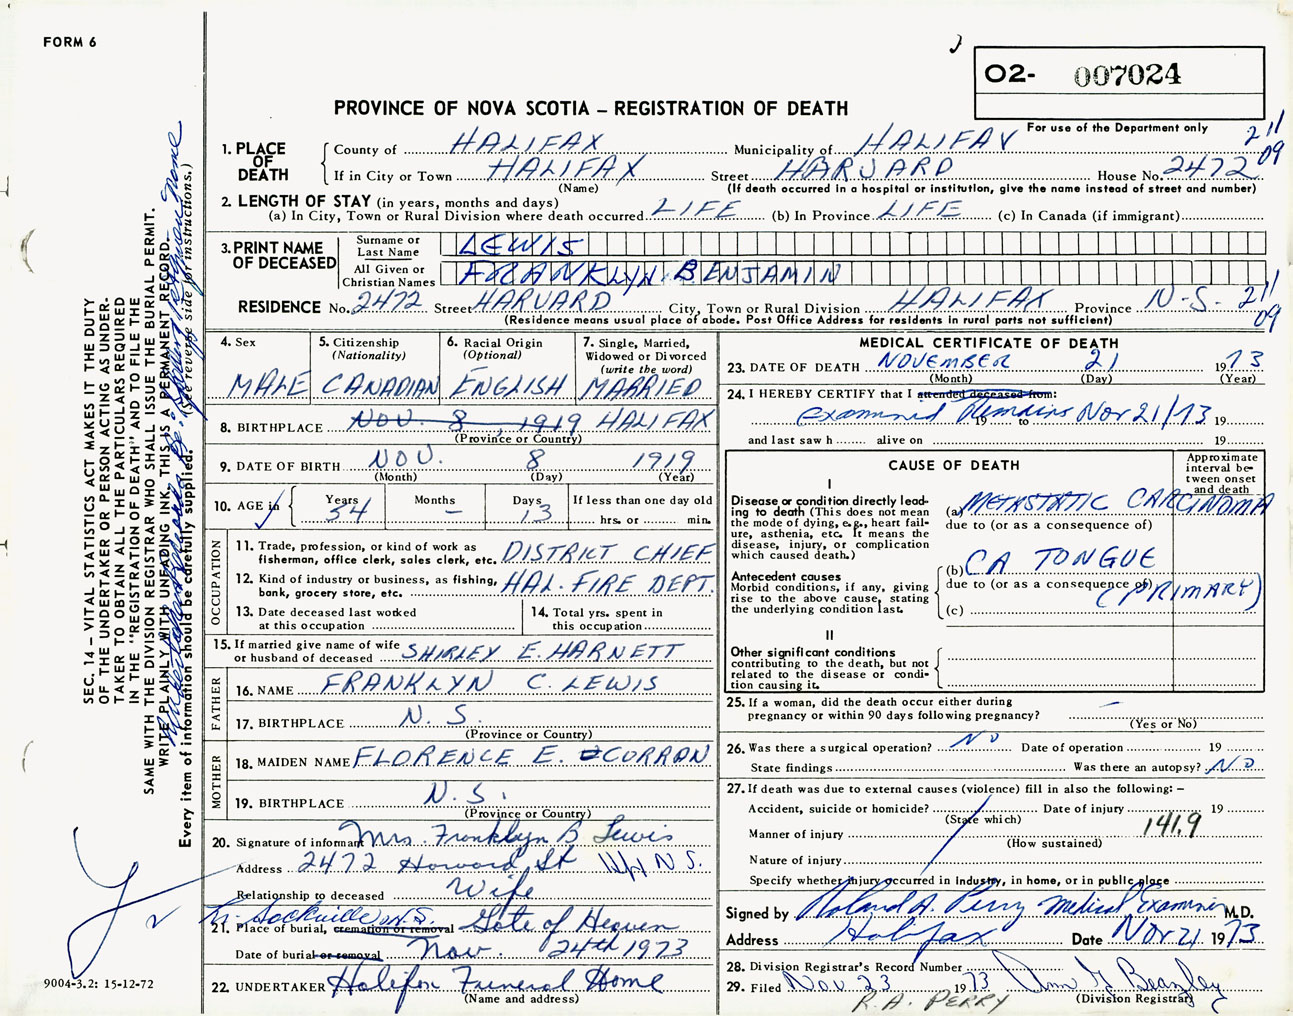 FORM 6
O2- 007024
PROVINCE OF NOVA SCOTIA – REGISTRATION OF DEATH
For use of the Department only
211
09
1. PLACE OF DEATH
County of HALIFAX Municipality of HALIFAX
If in City or Town HALIFAX Street HARVARD House No. 2472
(Name) (If death occurred in a hospital or institution, give the name instead of street and number)
2. LENGTH OF STAY (in years, months and days)
(a) In City, Town or Rural Division where death occurred LIFE (b) In Province LIFE (c) In Canada (if immigrant)
3. PRINT NAME OF DECEASED
Surname or Last Name LEWIS
All Given or Christian Names FRANKLYN BENJAMIN
RESIDENCE No. 2472 Street HARVARD City, Town or Rural Division HALIFAX Province N.S. 211
09
(Residence means usual place of abode. Post Office Address for residents in rural parts not sufficient)
4. Sex MALE
5. Citizenship (Nationality) CANADIAN
6. Racial Origin (Optional) ENGLISH
7. Single, Married, Widowed or Divorced (write the word) MARRIED
8. BIRTHPLACE NOV. 8, 1919 HALIFAX
(Province or Country)
9. DATE OF BIRTH NOV. 8 1919
(Month) (Day) (Year)
10. AGE in Years 54 Months – Days 13 If less than one day old
hrs. or min.
OCCUPATION
11. Trade, profession, or kind of work as fisherman, office clerk, sales clerk, etc. DISTRICT CHIEF
12. Kind of industry or business, as fishing, bank, grocery store, etc. HAL. FIRE DEPT.
13. Date deceased last worked at this occupation
14. Total yrs. spent in this occupation
15. If married give name of wife or husband of deceased SHIRLEY E. HARNETT
FATHER
16. NAME FRANKLYN C. LEWIS
17. BIRTHPLACE N.S.
(Province or Country)
MOTHER
18. MAIDEN NAME FLORENCE E. CURRAN
19. BIRTHPLACE N.S.
(Province or Country)
20. Signature of informant Mrs. Franklyn B Lewis
Address 2472 Harvard St Hfx N.S.
Relationship to deceased Wife
Lr. Sackville N.S.
21. Place of burial, cremation or removal Gate of Heaven
Date of burial or removal Nov. 24th 1973
22. UNDERTAKER Halifax Funeral Home
(Name and address)
MEDICAL CERTIFICATE OF DEATH
23. DATE OF DEATH NOVEMBER 21 1973
(Month) (Day) (Year)
24. I HEREBY CERTIFY that I attended deceased from:
Examined Remains Nov 21/73 19
19 to
and last saw h alive on 19
CAUSE OF DEATH
Approximate interval between onset and death
I
Disease or condition directly leading to death (This does not mean the mode of dying, e.g., heart failure, asthenia, etc. It means the disease, injury, or complication which caused death.)
(a) METASTATIC CARCINOMA
due to (or as a consequence of)
Antecedent causes
Morbid conditions, if any, giving rise to the above cause, stating the underlying condition last.
(b) CA TONGUE
due to (or as a consequence of)
(PRIMARY)
(c)
II
Other significant conditions
contributing to the death, but not related to the disease or condition causing it.
25. If a woman, did the death occur either during pregnancy or within 90 days following pregnancy? –
(Yes or No)
26. Was there a surgical operation? No Date of operation 19
State findings Was there an autopsy? No
27. If death was due to external causes (violence) fill in also the following: –
Accident, suicide or homicide? Date of injury 19
(State which)
Manner of injury 141.9
(How sustained)
Nature of injury
Specify whether injury occurred in Industry, in home, or in public place
Signed by Roland A. Perry Medical Examiner M.D.
Address Halifax Date Nov 21 1973
28. Division Registrar's Record Number
29. Filed Nov 23 1973 Ann G Beazley
(Division Registrar)
R.A. PERRY
SEC. 14 – VITAL STATISTICS ACT MAKES IT THE DUTY
OF THE UNDERTAKER OR PERSON ACTING AS UNDER-
TAKER TO OBTAIN ALL THE PARTICULARS REQUIRED
IN THE "REGISTRATION OF DEATH" AND TO FILE THE
SAME WITH THE DIVISION REGISTRAR WHO SHALL ISSUE THE BURIAL PERMIT.
WRITE PLAINLY WITH UNFADING INK. THIS IS A PERMANENT RECORD.
Every item of information should be carefully supplied. (See reverse side for instructions.)
9004-3.2: 15-12-72